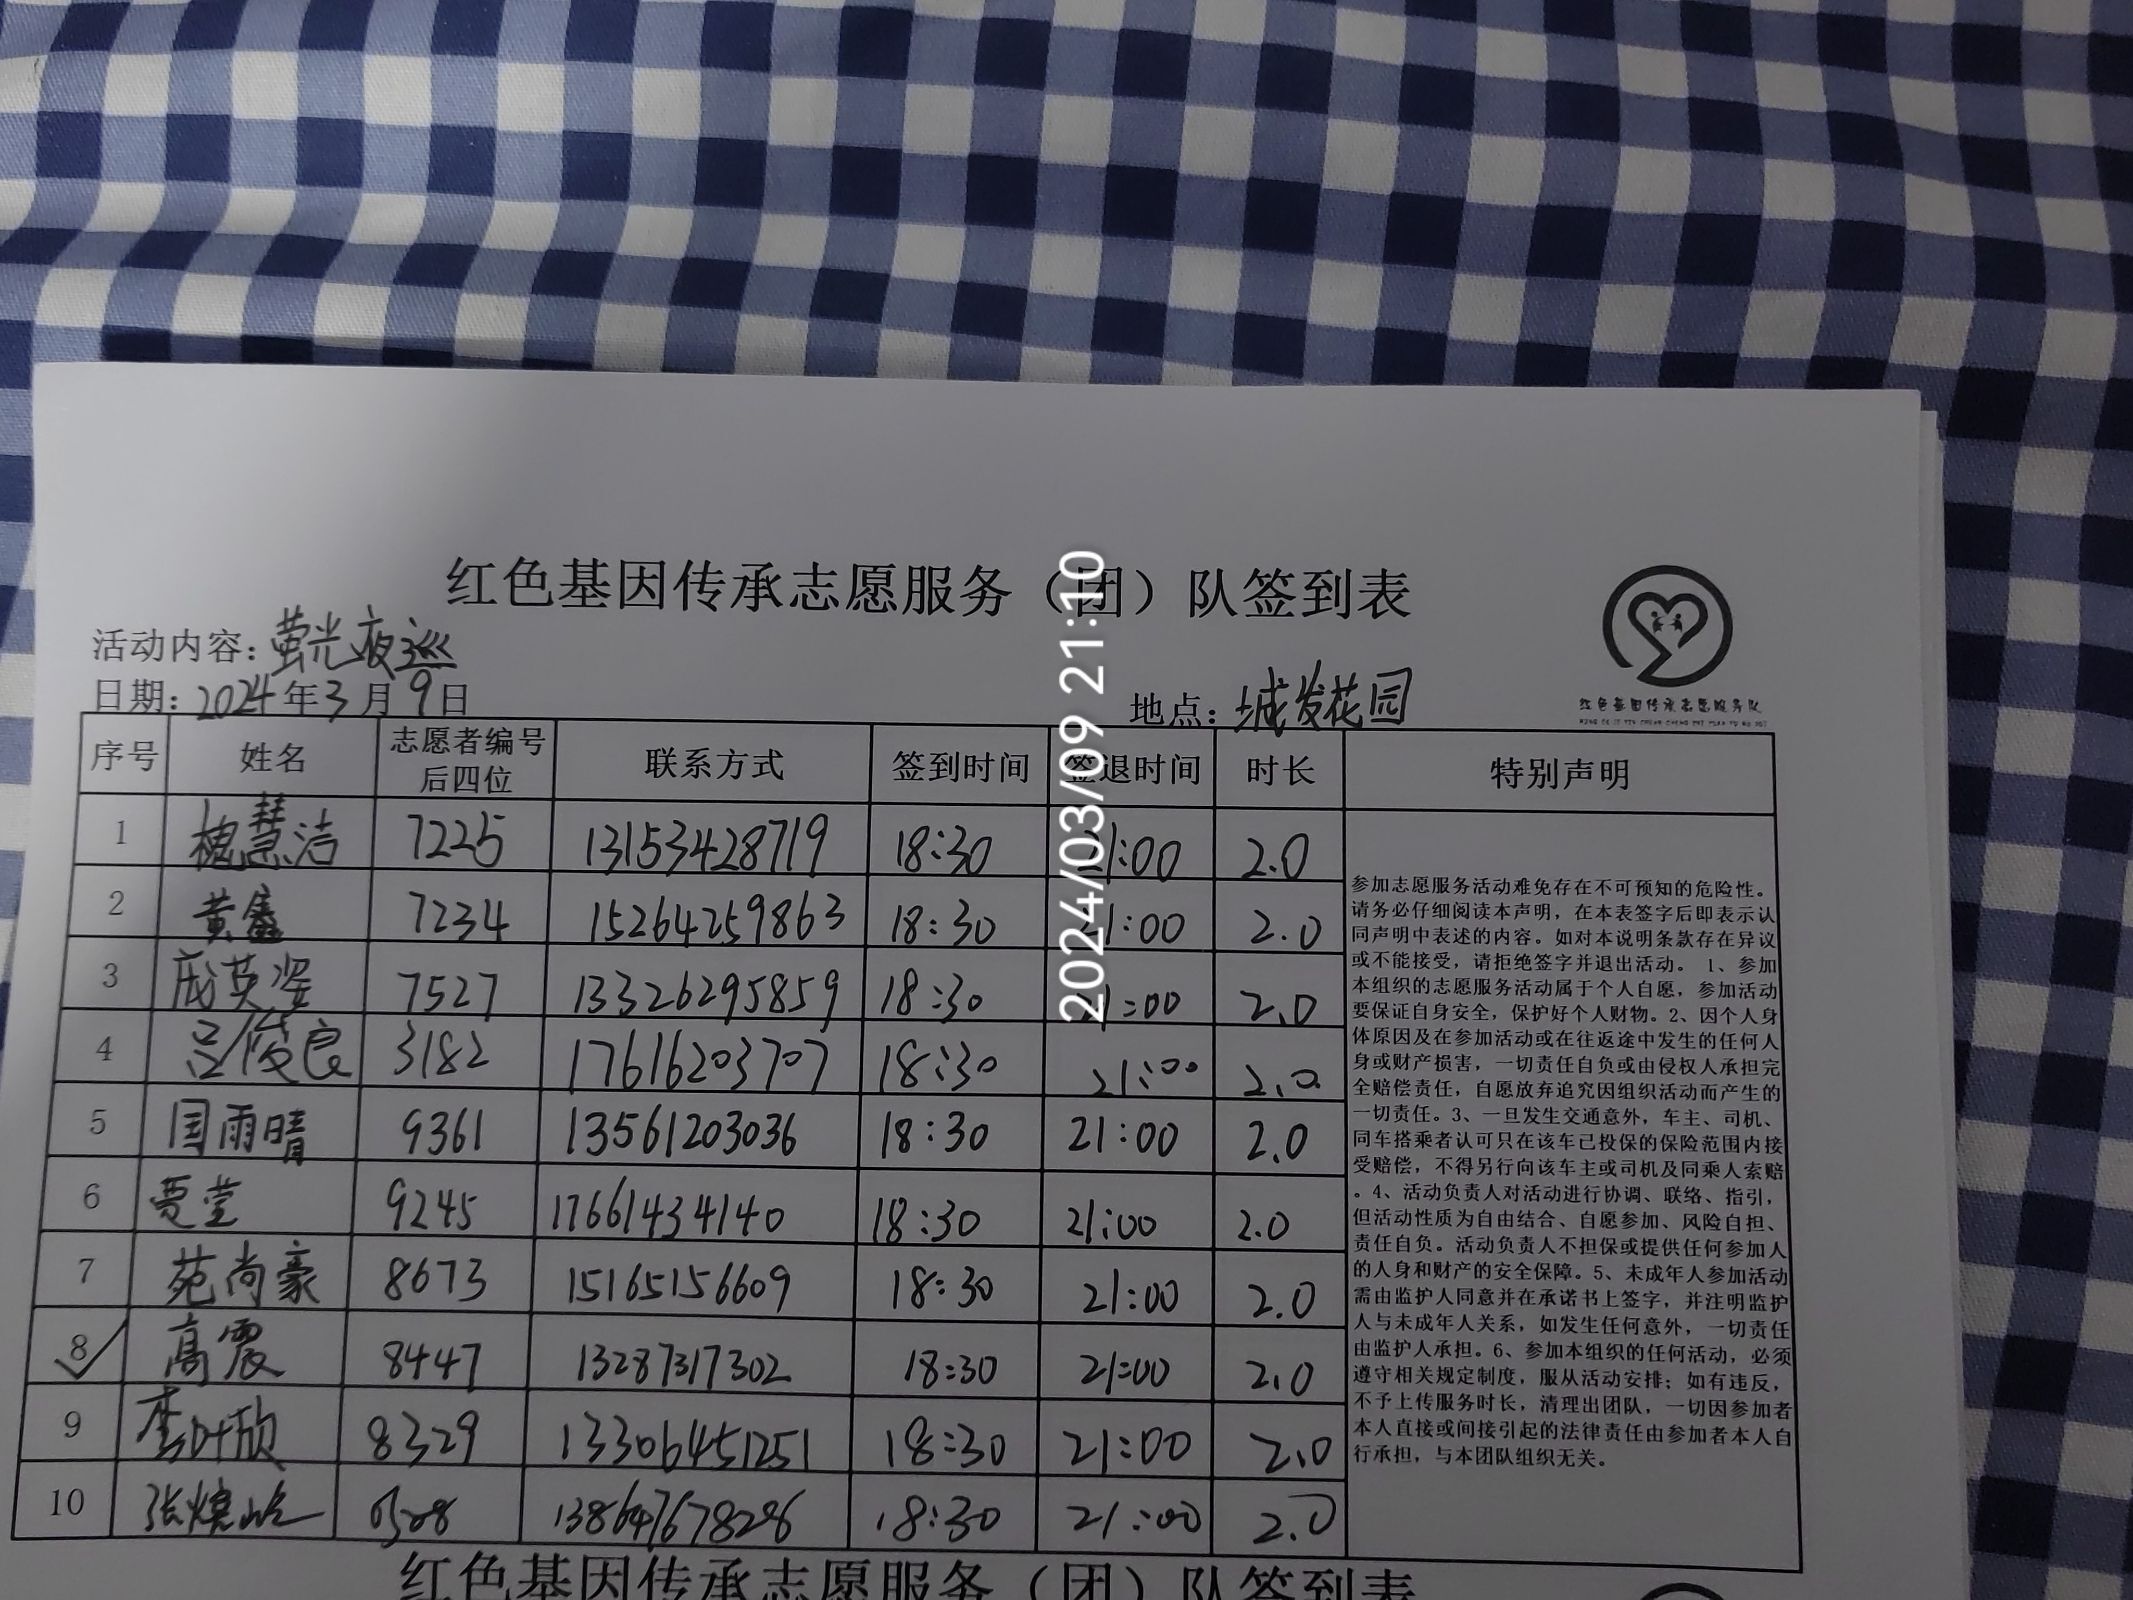 红色基因传承志愿服务（团）队签到表
活动内容：萤光夜巡
日期：2024年3月9日 地点：城发花园
红色基因传承志愿服务队
序号 姓名 志愿者编号后四位 联系方式 签到时间 签退时间 时长 特别声明
1 槐慧洁 7225 13153428719 18:30 21:00 2.0
2 黄鑫 7234 15264259863 18:30 21:00 2.0
3 英姿 7527 13326295859 18:30 21:00 2.0
4 吕俊良 3182 17616203707 18:30 21:00 2.0
5 国雨晴 9361 13561203036 18:30 21:00 2.0
6 贾莹 9245 17661434140 18:30 21:00 2.0
7 苑尚豪 8673 15165156609 18:30 21:00 2.0
8 高震 8447 13287317302 18:30 21:00 2.0
9 李叶欣 8329 13306451251 18:30 21:00 2.0
10 张 18:30 21:00 2.0
参加志愿服务活动难免存在不可预知的危险性。
请务必仔细阅读本声明，在本表签字后即表示认
同声明中表述的内容。如对本说明条款存在异议
或不能接受，请拒绝签字并退出活动。 1、参加
本组织的志愿服务活动属于个人自愿，参加活动
要保证自身安全，保护好个人财物。2、因个人身
体原因及在参加活动或在往返途中发生的任何人
身或财产损害，一切责任自负或由侵权人承担完
全赔偿责任，自愿放弃追究因组织活动而产生的
一切责任。3、一旦发生交通意外，车主、司机、
同车搭乘者认可只在该车已投保的保险范围内接
受赔偿，不得另行向该车主或司机及同乘人索赔
。4、活动负责人对活动进行协调、联络、指引，
但活动性质为自由结合、自愿参加、风险自担、
责任自负。活动负责人不担保或提供任何参加人
的人身和财产的安全保障。5、未成年人参加活动
需由监护人同意并在承诺书上签字，并注明监护
人与未成年人关系，如发生任何意外，一切责任
由监护人承担。6、参加本组织的任何活动，必须
遵守相关规定制度，服从活动安排；如有违反，
不予上传服务时长，清理出团队，一切因参加者
本人直接或间接引起的法律责任由参加者本人自
行承担，与本团队组织无关。
红色基因传承志愿服务（团）队签到表
2024/03/09 21:10